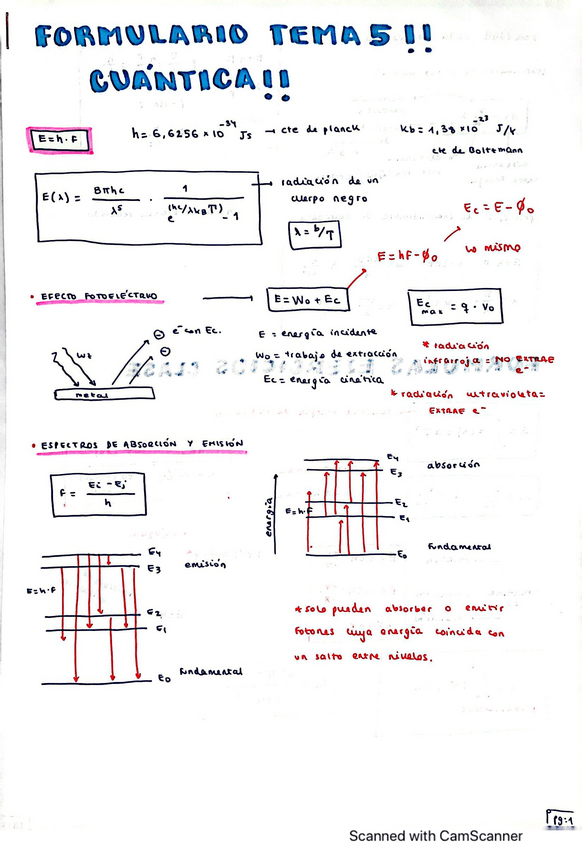 FORMULARIO TEMA 5!!
CUÁNTICA!!
E=h·F
h= 6,6256 × 10^-34 Js → cte de planck
kb= 1,38 ×10^-23 J/k
cte de Boltzmann
E(λ) = 8πhc/λ^5 · 1/(e^(hc/λkBT) - 1)
→ radiación de un
cuerpo negro
λ = b/T
Ec = E - Ø0
E = hF - Ø0
lo mismo
• EFECTO FOTOELÉCTRICO
E = Wo + Ec
Ec max = q · Vo
e- con Ec.
metal
E = energía incidente
Wo = trabajo de extracción
Ec = energía cinética
* radiación
infrarroja = NO EXTRAE
e-
* radiación ultravioleta =
EXTRAE e-
• ESPECTROS DE ABSORCIÓN Y EMISIÓN
F = Ei - Ej / h
energía
E=h·F
E4
E3
E2
E1
E0
absorción
Fundamental
E=h·F
E4
E3
E2
E1
E0
emisión
Fundamental
* solo pueden absorber o emitir
fotones cuya energía coincida con
un salto entre niveles.
Pg:1
Scanned with CamScanner